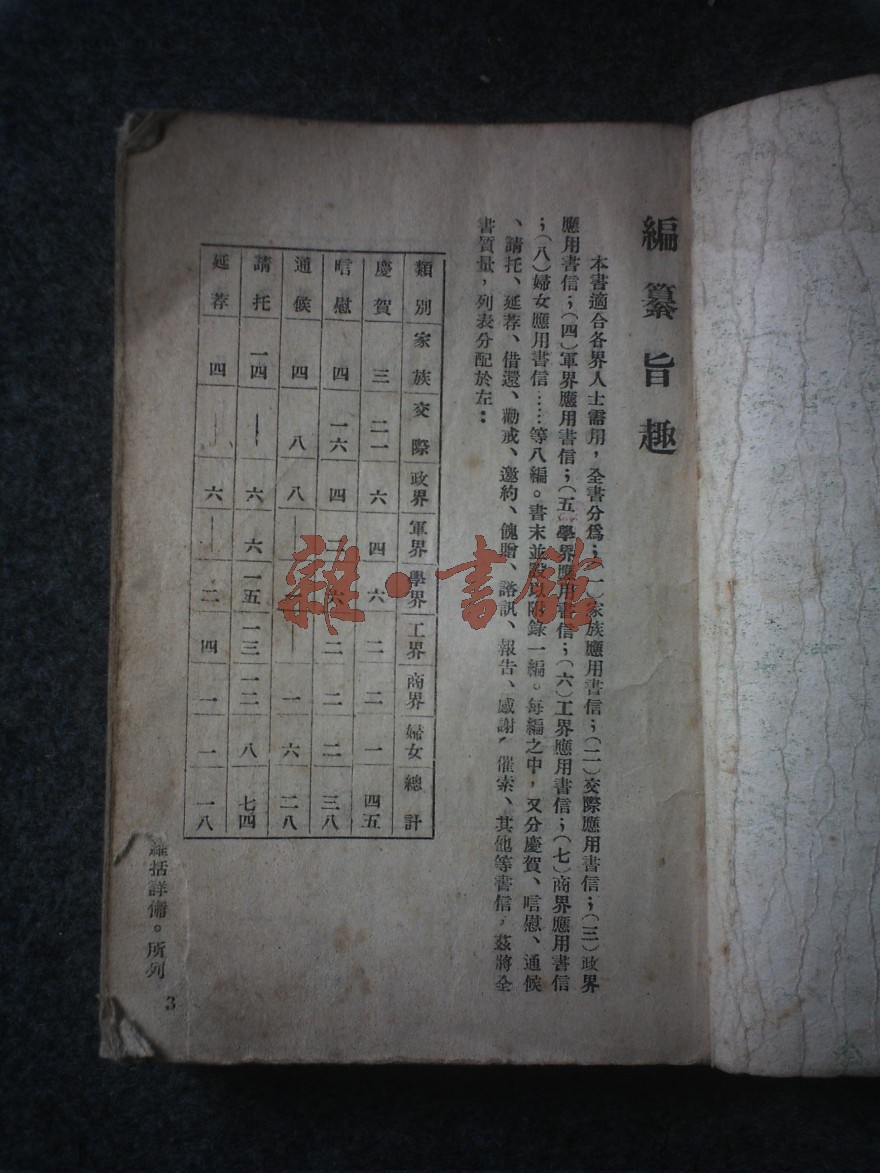 編纂旨趣
本書適合各界人士需用，全書分爲；(一)家族應用書信；(二)交際應用書信；(三)政界
應用書信；(四)軍界應用書信；(五)學界應用書信；(六)工界應用書信；(七)商界應用書信
；(八)婦女應用書信……等八編。書末並以附錄一編。每編之中，又分慶賀、唁慰、通候
、請托、延荐、借還、勸戒、邀約、餽贈、諮訊、報告、感謝，催索、其他等書信，茲將全
書質量，列表分配於左：
類別 家族 交際 政界 軍界 學界 工界 商界 婦女 總計
慶賀 三 二一 六 四 六 二 二 一 四五
唁慰 四 一六 四 二 六 二 二 二 三八
通候 四 八 八 — 一 — 一 六 二八
請托 一四 — 六 六 一五 一三 一二 八 七四
延荐 四 — 六 — 二 四 一 一 一八
括詳備。所列
3
雜·書館